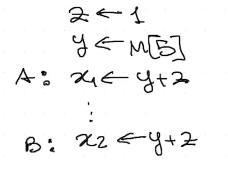 z ← 1
y ← M[5]
A: x₁ ← y+z
⋮
B: x₂ ← y+z